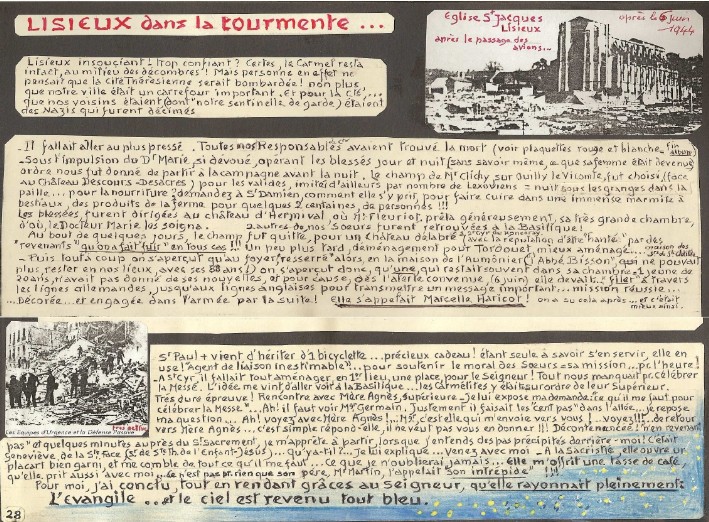 LISIEUX dans la tourmente ...
Eglise St Jacques
Lisieux
après le passage des
avions...
après le 6 juin
1944
Lisieux insouciant ! trop confiant ? Certes, le Carmel resta
intact, au milieu des décombres ! Mais personne en effet ne
pensait que la Cité Thérésienne serait bombardée ! non plus
que notre ville était un carrefour important. Et pour la Cté,...
que nos voisins étaient (dont "notre sentinelle de garde) étaient
des Nazis qui furent décimés
Il fallait aller au plus pressé. Toutes nos Responsables avaient trouvé la mort (voir plaquettes rouge et blanche
Sous l'impulsion du Dr Marie, si dévoué, opérant les blessés jour et nuit (sans savoir même, ce que sa femme était devenue)
ordre nous fut donné de partir à la campagne avant la nuit. Le champ de Mr Clichy sur Ouilly le Vicomte, fut choisi, (face
au Château Descours-Desacres) pour les valides, imité d'ailleurs par nombre de Lexoviens = nuit sous les granges dans la
paille... pour la nourriture ? demandez à St Damien, comment elle s'y prit, pour faire cuire dans une immense marmite à
bestiaux, des produits de la ferme pour quelques 2 centaines, de personnes !!!
Les blessées, furent dirigées au château d'Hermival, où Mr Fleuriot, prêta généreusement, sa très grande chambre,
d'où, le Docteur Marie les soigna. 2 autres de nos Soeurs furent retrouvées à la Basilique !
Au bout de quelques jours, le champ fut quitté, pour un Château délabré (avec la réputation d'être "hanté" par des
"revenants" qu'on a fait fuir" en tous cas !!! Un peu plus tard, déménagement pour Tordouet, mieux aménagé...
Puis tout à coup on s'aperçut qu'au foyer, resserré alors, en la maison de l'Aumônier (l'Abbé Bisson", qui ne pouvait
plus, rester en nos lieux, avec ses 88 ans !) on s'aperçut donc, qu'une, qui restait souvent dans sa chambre - 1 jeune de
Paris, n'avait pas donné de ses nouvelles, et pour cause, dès l'alerte convenue, (6 juin) elle devait.. "filer" à travers
les lignes allemandes, jusqu'aux lignes anglaises pour transmettre un message important... mission réussie...
...Décorée...et engagée dans l'armée par la suite ! elle s'appelait Marcelle Haricot ! on a su cela après...et c'était
mieux ainsi.
Les Equipes d'Urgence et la Défense Passive
St Paul + vient d'hériter d'1 bicyclette... précieux cadeau ! étant seule à savoir s'en servir, elle en
use ! "agent de liaison inestimable"...pour soutenir le moral des Soeurs = sa mission...pr. l'heure !
A St Cyr, il fallait tout aménager, en 1er lieu, une place, pour le Seigneur ! Tout nous manquait pr. célébrer
la Messe. L'idée me vint d'aller voir à la Basilique... les Carmélites y étaient sur ordre de leur Supérieur.
Très dure épreuve ! Rencontre avec Mère Agnès, Supérieure. Je lui expose ma demande. "ce qu'il me faut pour
célébrer la Messe"... Ah ! il faut voir Mr Germain. Justement il faisait les cent pas" dans l'allée... je repose
ma question... Ah ! voyez avec Mère Agnès !.. Mr, c'est elle qui m'envoie vers vous !..voyez !!! de retour
vers Mère Agnès... c'est simple répond-elle, il ne veut pas vous en donner !!! Décontenancée, l'on revenant
pas" et quelques minutes auprès du St Sacrement, je m'apprête à partir, lorsque j'entends des pas précipités derrière-moi ! C'était
Geneviève, de la Ste Face (Sr de Ste Th. de l'Enfant-Jésus)... qu'y a-t-il ?.. Je lui explique... venez avec moi - A la Sacristie, elle ouvre un
placart bien garni, et me comble de tout ce qu'il me faut... Ce que je n'oublierai jamais... elle m'offrit une tasse de café
qu'elle, prit aussi avec moi... ce n'est pas pr. rien que son père, Mr Martin, l'appelait "Son intrépide" !!!
Pour moi, j'ai conclu, tout en rendant grâces au Seigneur, qu'elle rayonnait pleinement
L'Evangile ...et le ciel est revenu tout bleu.
28